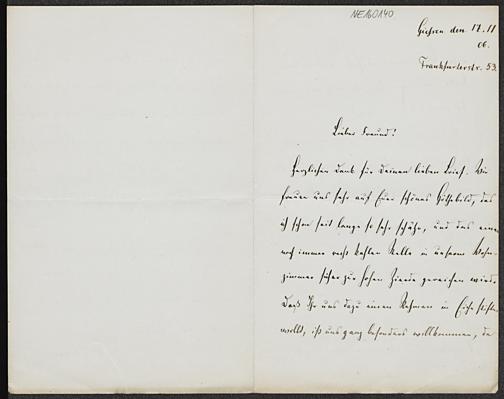 NE160140
Giessen den 17.11
06.
Frankfurterstr. 53.
Lieber Freund!
Herzlichen Dank für Deinen lieben Brief. Wir
freuen uns sehr auf Euer schönes Göthebild, das
ich schon seit lange so sehr schätze, und das einer
noch immer recht kahlen Stelle in unserm Wohn-
zimmer sicher zur hohen Zierde gereichen wird.
Daß Ihr uns dazu einen Rahmen in Eiche stiften
wollt, ist uns ganz besonders willkommen, da